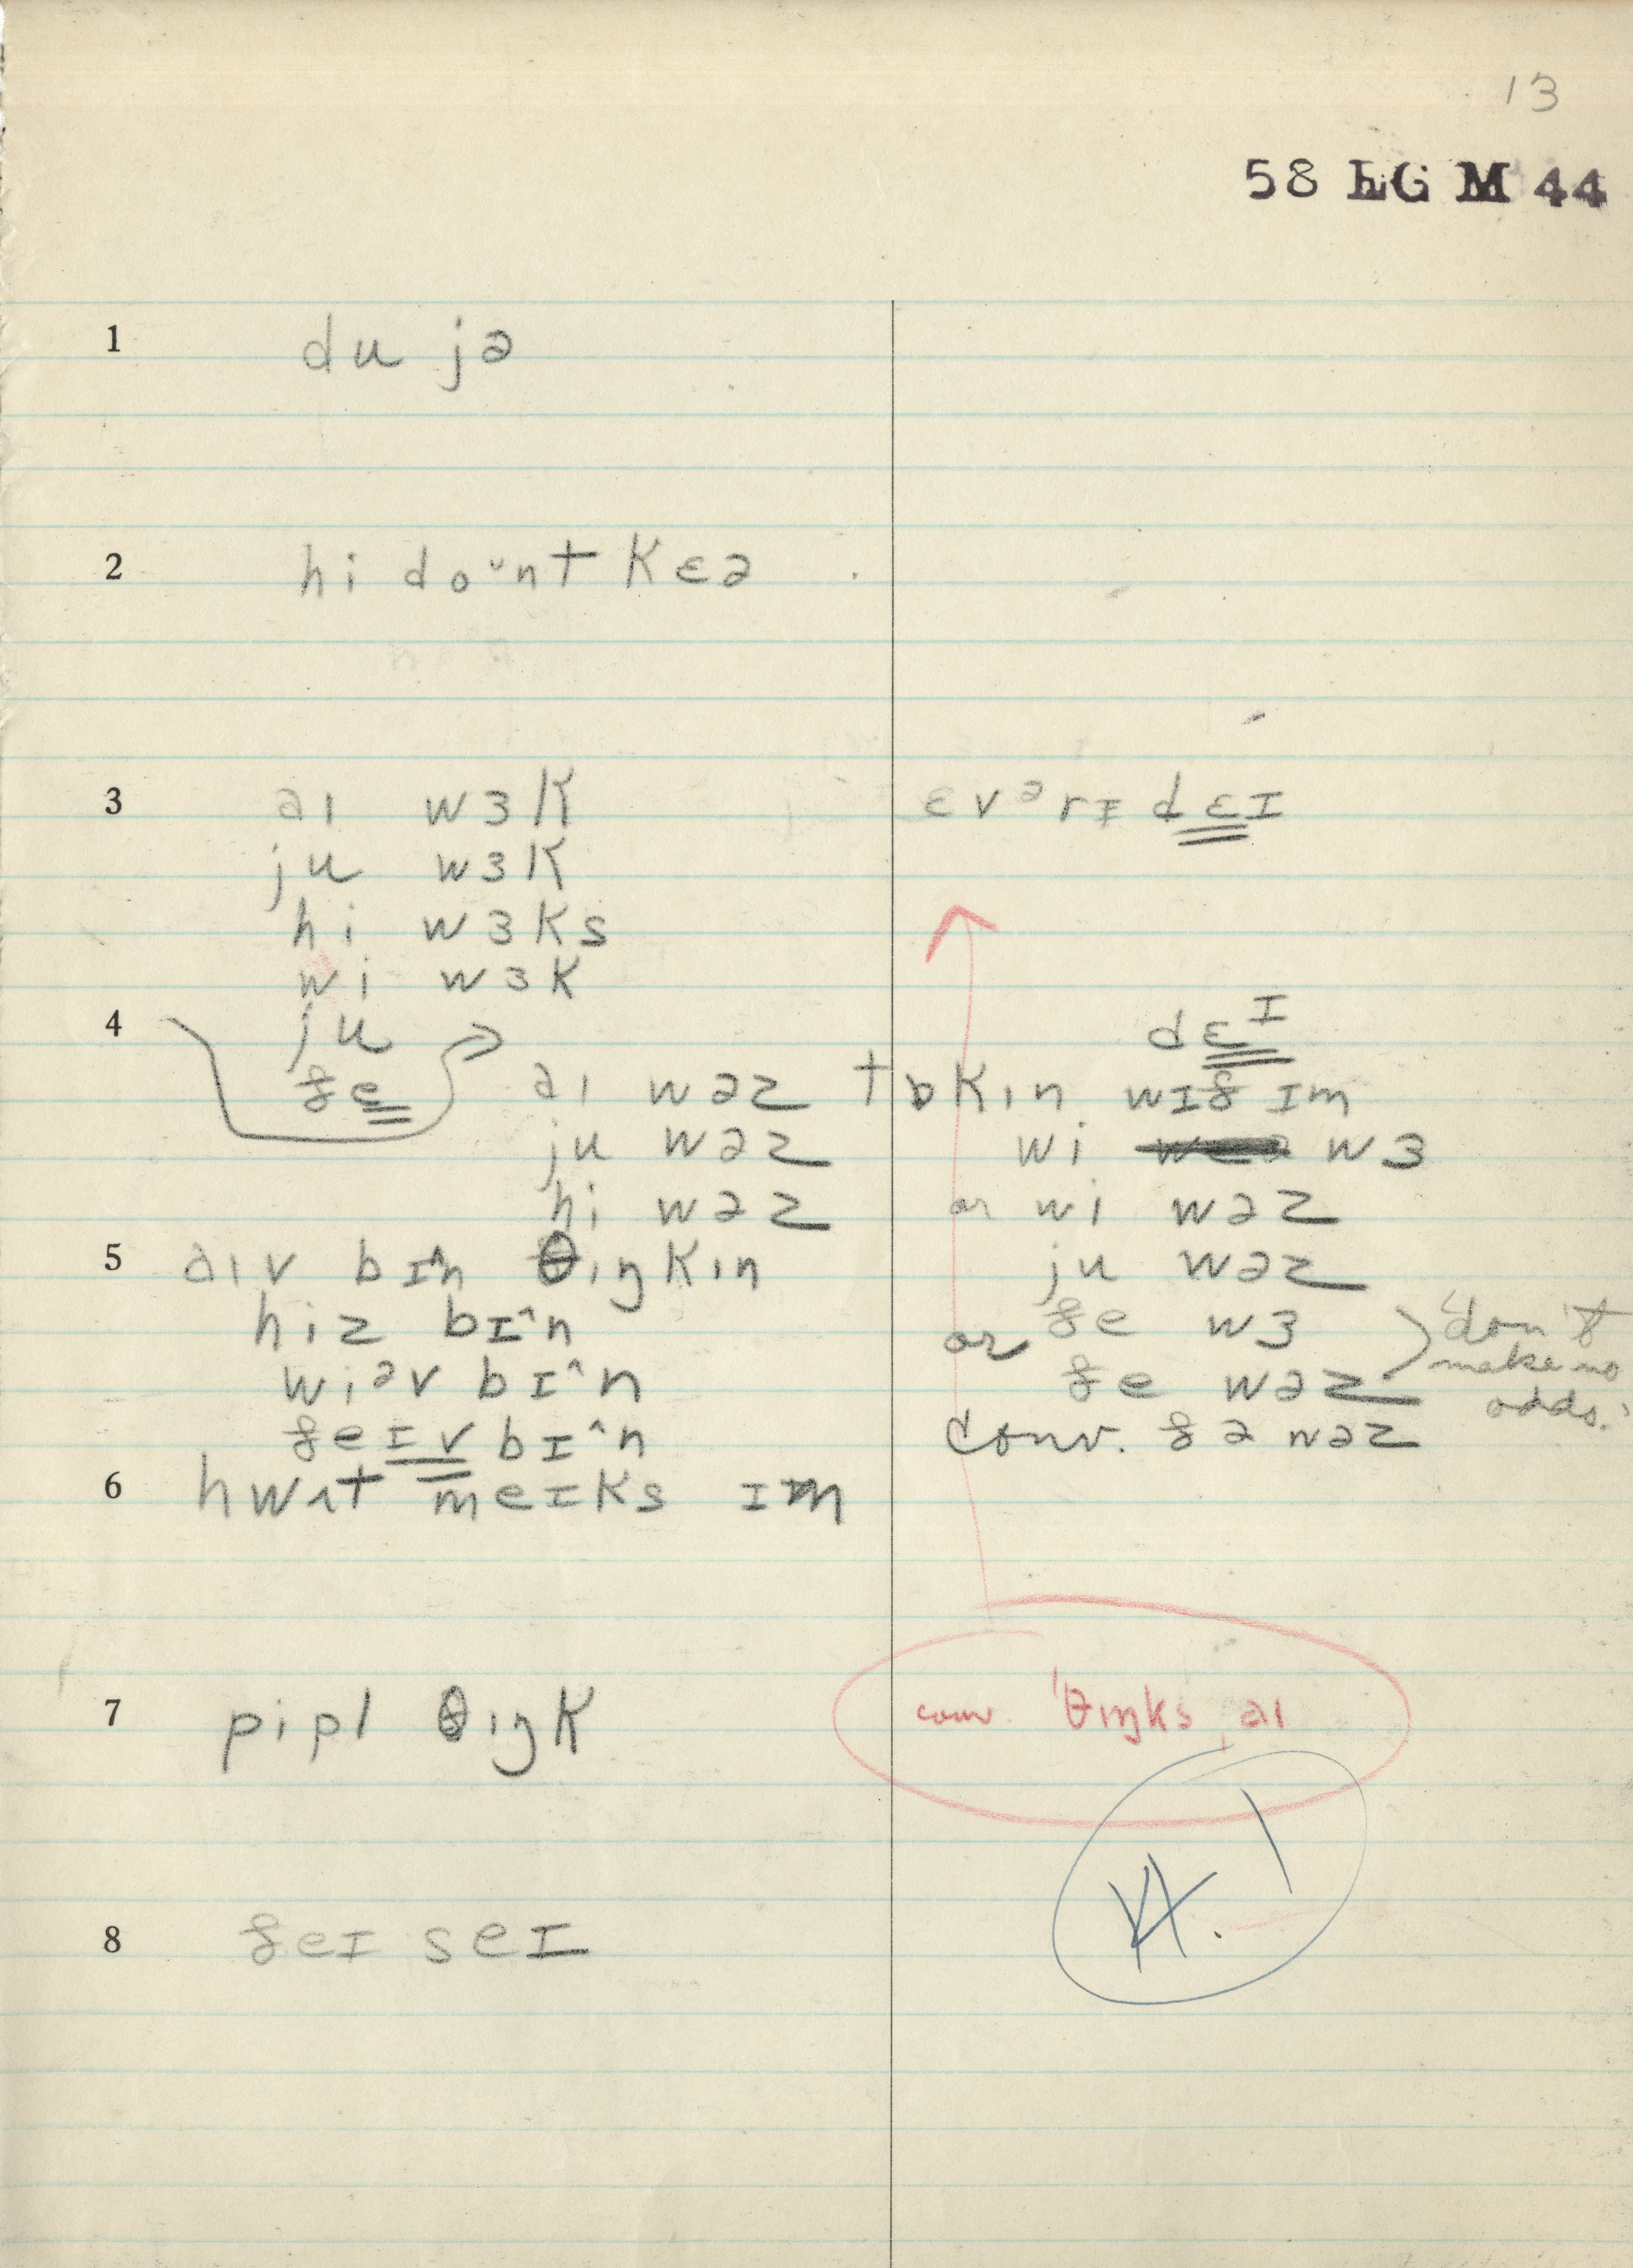 13
58 LG M 44
1 du jə
2 hi doᵘnt kɛə
3 aɪ wɜk ɛvᵊrɪ dɛɪ
ju wɜk
hi wɜks
wi wɜk
4 ju dɛᴵ
ðe aɪ wəz tɒkɪn wɪð ɪm
ju wəz wi wɜ
hi wəz or wi wəz
5 aɪv bɪ^n θɪŋkɪn ju wəz
hiz bɪ^n ðe wɜ "don't
wiəv bɪ^n or ðe wəz make no
ðeɪv bɪ^n conv. ðə wəz odds."
6 hwʌt meɪks ɪm
7 pipl θɪŋk conv. 'θɪŋks ˌaɪ
8 ðeɪ seɪ